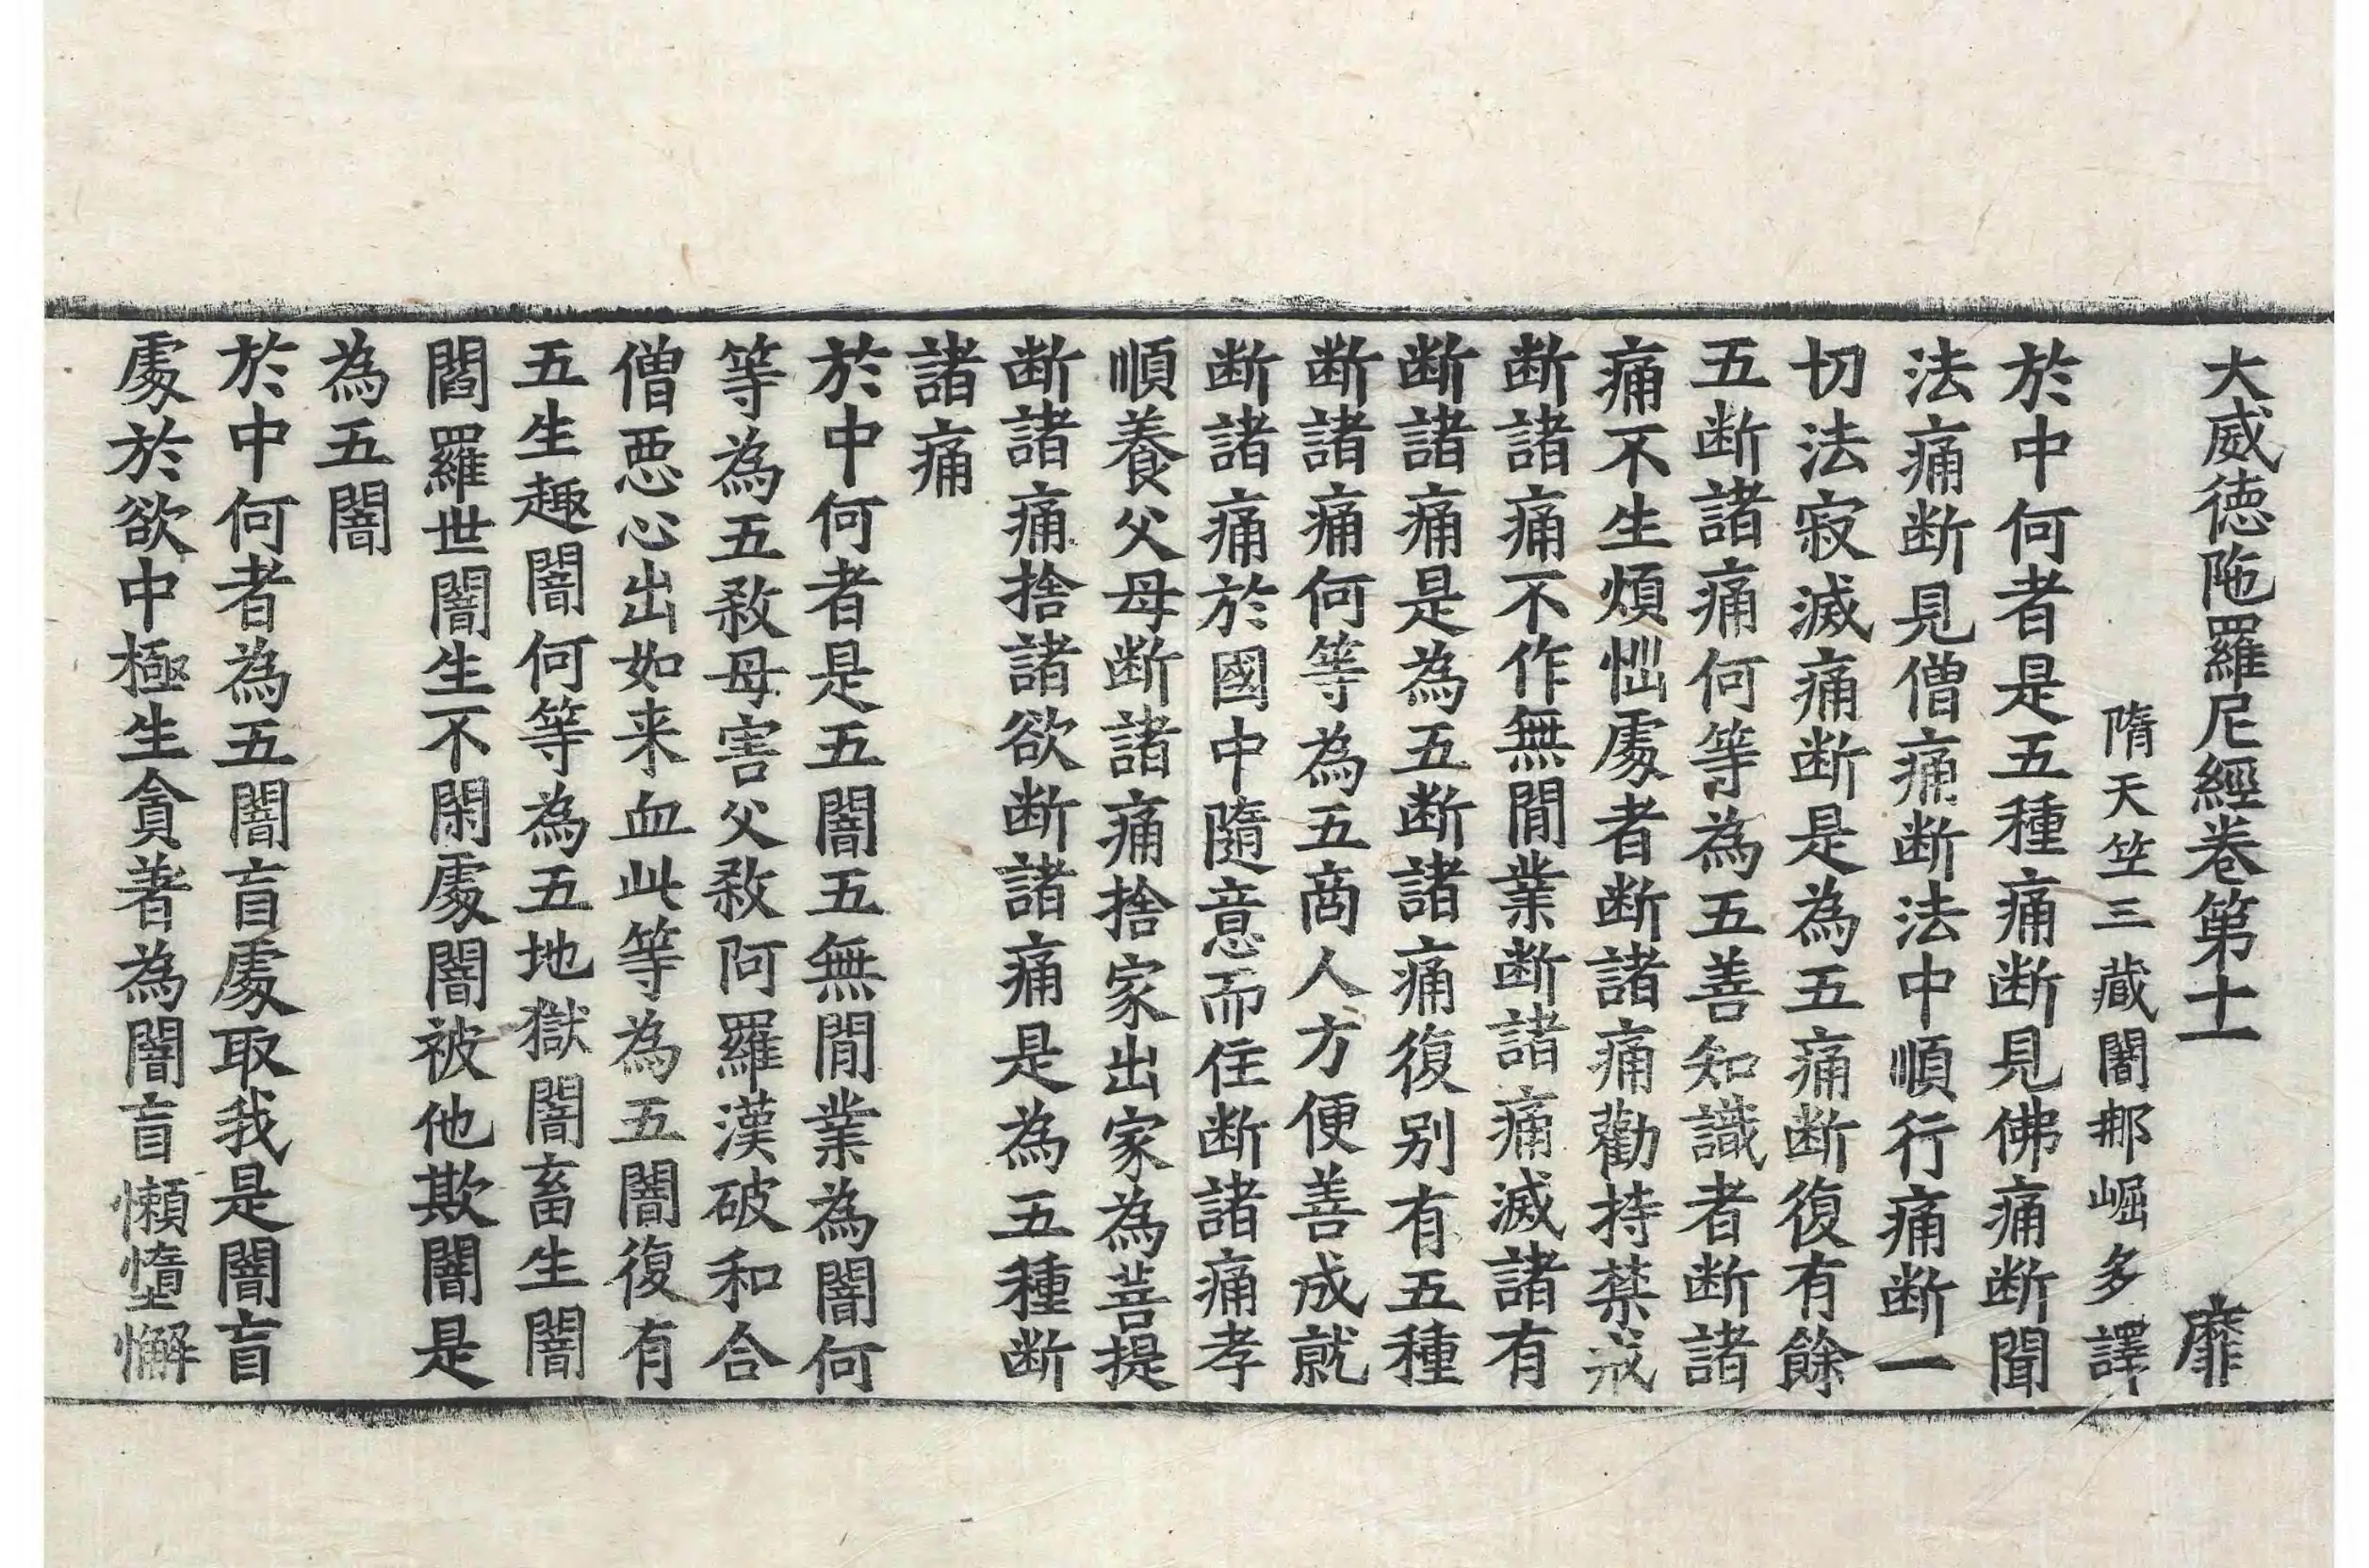 大威德陁羅尼經卷第十一 靡
隋天竺三藏闍那崛多譯
於中何者是五種痛断見佛痛断聞
法痛断見僧痛断法中順行痛断一
切法寂滅痛断是為五痛断復有餘
五断諸痛何等為五善知識者断諸
痛不生煩惱處者断諸痛勸持禁戒
断諸痛不作無間業断諸痛滅諸有
断諸痛是為五断諸痛復别有五種
断諸痛何等為五商人方便善成就
断諸痛於國中隨意而住断諸痛孝
順養父母断諸痛捨家出家為菩提
断諸痛捨諸欲断諸痛是為五種断
諸痛
於中何者是五闇五無間業為闇何
等為五敎母害父敎阿羅漢破和合
僧惡心出如来血此等為五闇復有
五生趣闇何等為五地獄闇畜生闇
閻羅世闇生不閑處闇被他欺闇是
為五闇
於中何者為五闇盲處取我是闇盲
處於欲中極生貪著為闇盲懶惰懈